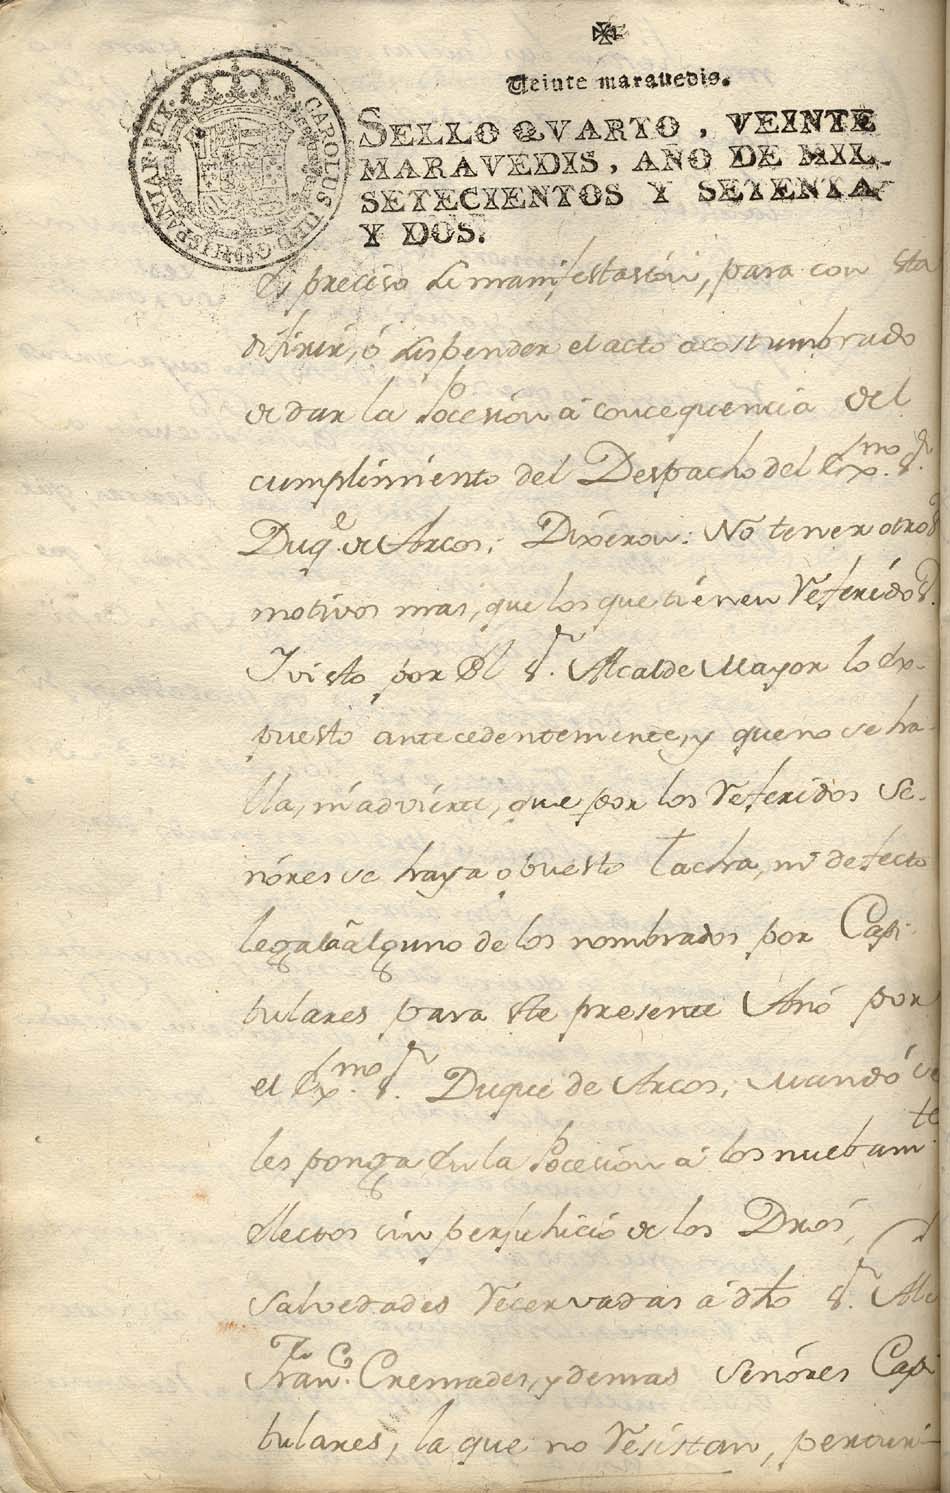 Veinte maravedis.
SELLO QVARTO, VEINTE
MARAVEDIS, AÑO DE MIL
SETECIENTOS Y SETENTA
Y DOS.
CAROLUS III D G HISPANIAR REX
preciso de manifestasión, para con sta
diferir, ó suspender el acto acostumbrado
de dar la Pocesión á concequencia del
cumplimiento del Despacho del Exmo. Sr.
Duqe. de Arcos; Dixeron: No tener otros
motivos mas, que los que tienen referidos.
Y visto por el Sr. Alcalde Mayor lo ex-
puesto antecedentemente, y que no se ha-
lla, ni advierte, que por los referidos Se-
ñores se haya opuesto tacha, ni defecto
legal à alguno de los nombrados por Capi-
tulares para este presente Año por
el Exmo. Sr. Duque de Arcos; mandó se
les ponga en la Pocesión á los nuebamte.
electos sin perjuhicio de los Dros,
salvedades recervadas á dho Sr.
Franco. Cremades, y demas Señores Capi
tulares, la que no resistan,